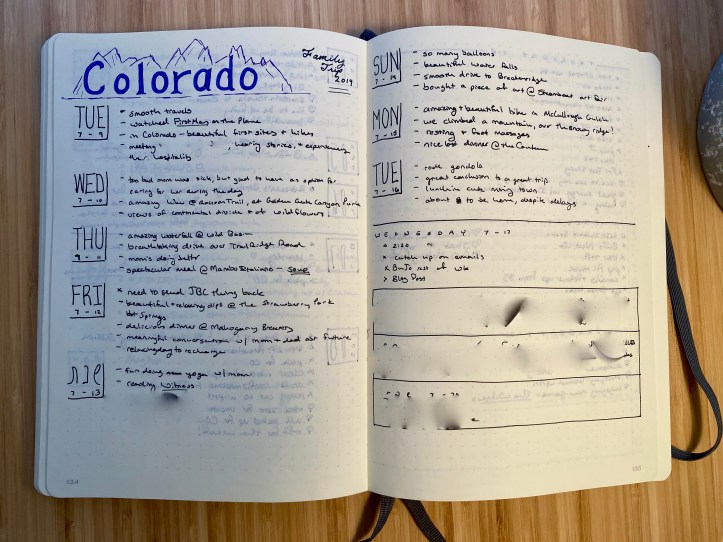 Colorado
Family
Trip
2019
TUE
7 - 9
- smooth travels
- watched First Man on the plane
- in Colorado - beautiful first sites + hikes
- meeting , hearing stories, + experiencing
their hospitality
WED
7 - 10
- too bad mom was sick, but glad to have an option for
caring for her during the day
- amazing hike @ Raccoon Trail, at Golden Gate Canyon Park
- views of continental divide + of wildflowers
THU
- amazing waterfall @ Wild Basin
- breathtaking drive over Trail Ridge Road
- mom's doing better
- spectacular meal @ Mambo Italiano - soup
FRI
7 - 12
x need to send JBC thing back
- beautiful + relaxing dips @ the Strawberry Park
Hot Springs
- delicious dinner @ Mahogany Brewery
- meaningful conversation w/ mom + dad abt future
- relaxing day to recharge
7 - 13
- fun doing some yoga w/ mom
- reading Witness
SUN
7 - 14
- so many balloons
- beautiful water falls
- smooth drive to Breckenridge
- bought a piece of art @ Steamboat Art Fair
MON
7 - 15
- amazing + beautiful hike in McCullough Gulch
- we climbed a mountain, over the snowy ridge!
- resting + foot massages
- nice last dinner @ the
TUE
7 - 16
- rode gondola
- great conclusion to a great trip
- lunch in cute mining town
- about to be home, despite delays
WEDNESDAY 7 - 17
x catch up on emails
x BuJo rest of wk
> Blog Post
134
135